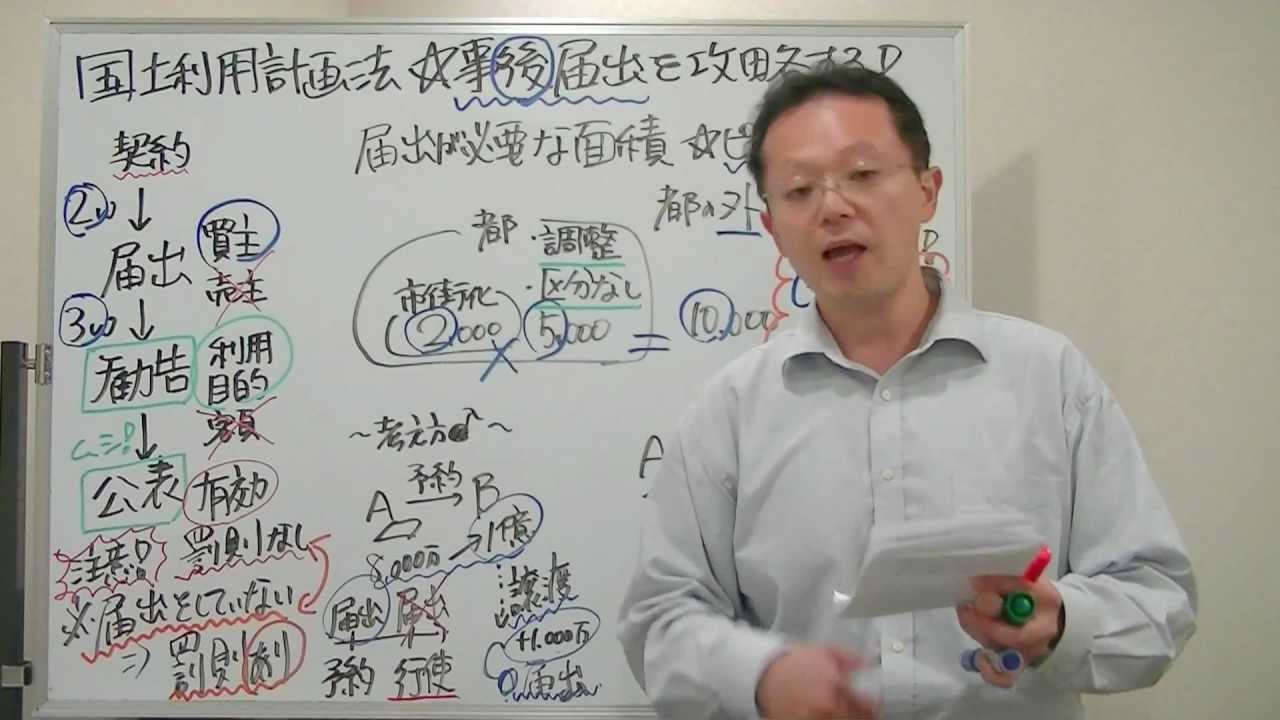 国土利用計画法 ☆事後届出を攻略する!
届出が必要な面積 ☆ピ
契約
2w ↓
届出 買主
売主
3w ↓
勧告 利用目的
↓ 額
公表 有効
注意! 罰則なし
※届出をしていない
⇒ 罰則あり
都の外
都 ・調整
市街化 ・区分なし
2,000 × 5,000 = 10,000
〜考え方〜
予約
A → B
8,000万 → 1億
届出 届出
予約 行使
譲渡
+1,000万
届出
A